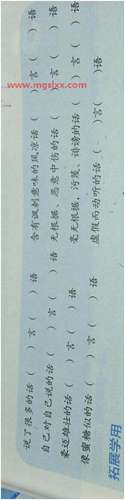 www.mgslxx.com
拓展学用
说了很多的话（ ）言（ ）语 含有讽刺意味的风凉话（ ）言（ ）语
自己对自己说的话（ ）言（ ）语 无根据、恶意中伤的话（ ）言（ ）语
豪迈雄壮的话（ ）言（ ）语 毫无根据，污蔑、诽谤的话（ ）言（ ）语
像蜜糖似的话（ ）言（ ）语 虚假而动听的话（ ）言（ ）语